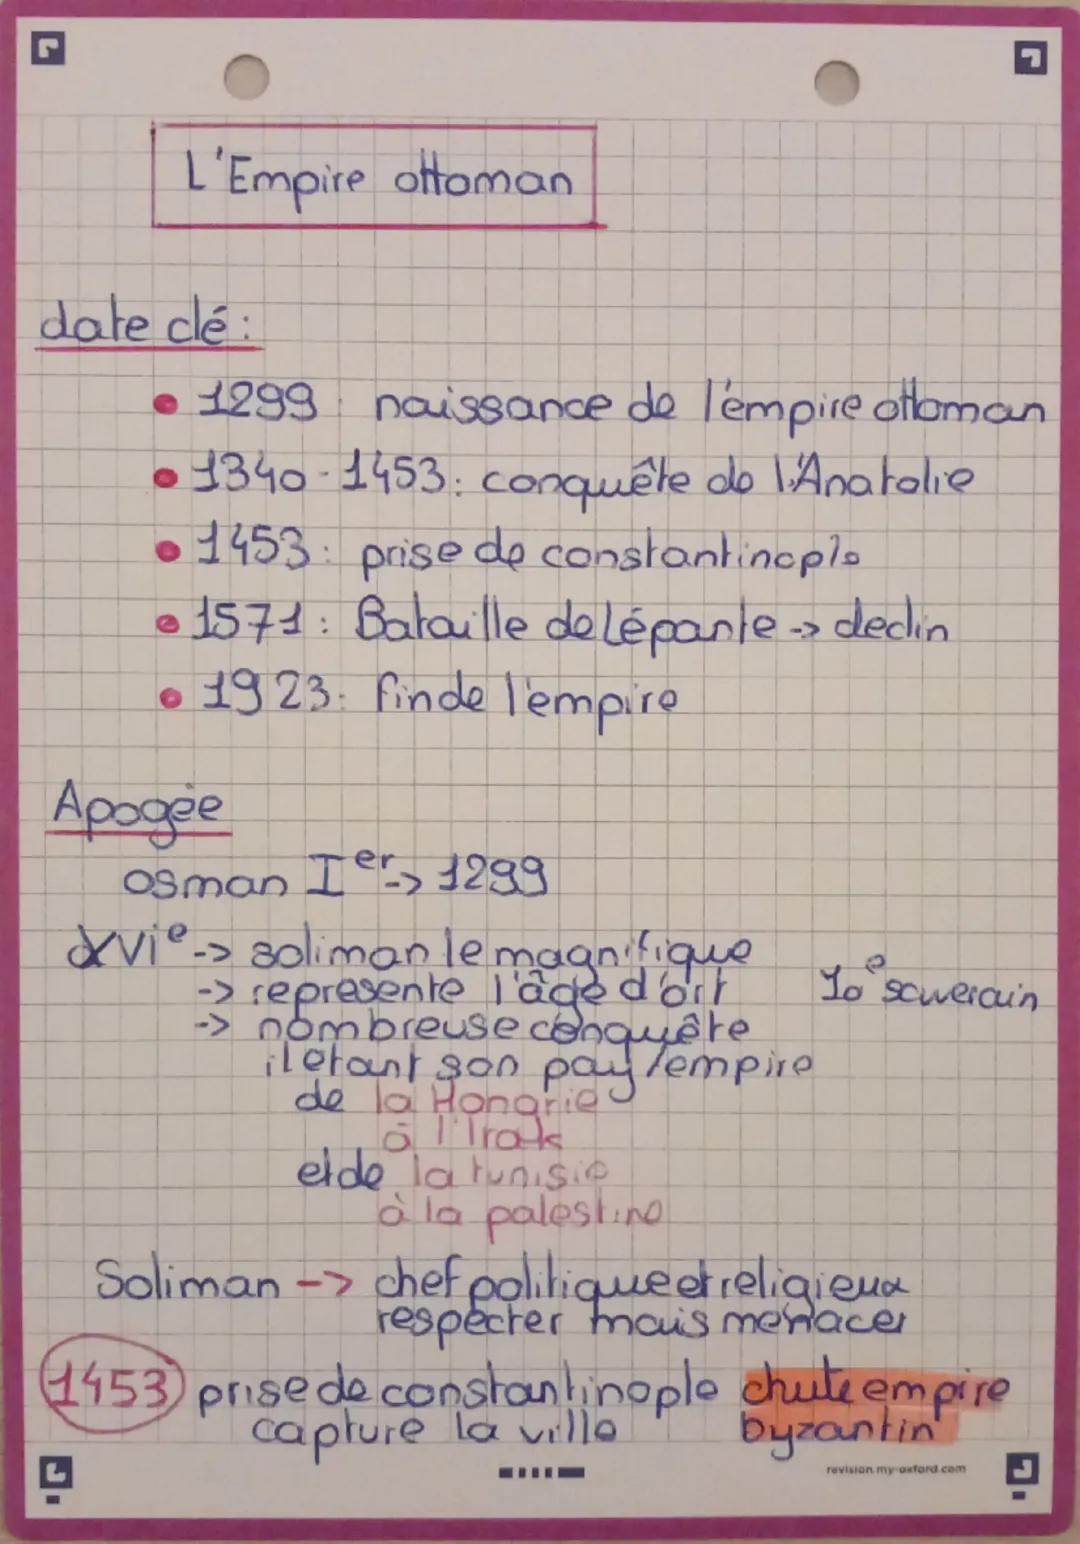 L'Empire ottoman
date clé :
• 1299 : naissance de l'empire ottoman
• 1340 - 1453 : conquête de l'Anatolie
• 1453 : prise de constantinople
• 1571 : Bataille de Lépante -> declin
• 1923 : fin de l'empire
Apogée
osman Ier -> 1299
XVIe -> soliman le magnifique
-> represente l'âge d'ort 10e souverain
-> nombreuse conquête
il etant son pay/empire
de la Hongrie
à l'Irak
et de la tunisie
à la palestine
Soliman -> chef politique et religieux
respecter mais menacer
1453 prise de constantinople chute empire
capture la ville byzantin
revision.my-oxford.com